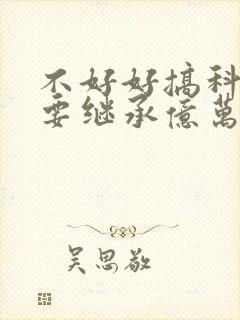 不好好搞科
要继承億萬
吴思敬